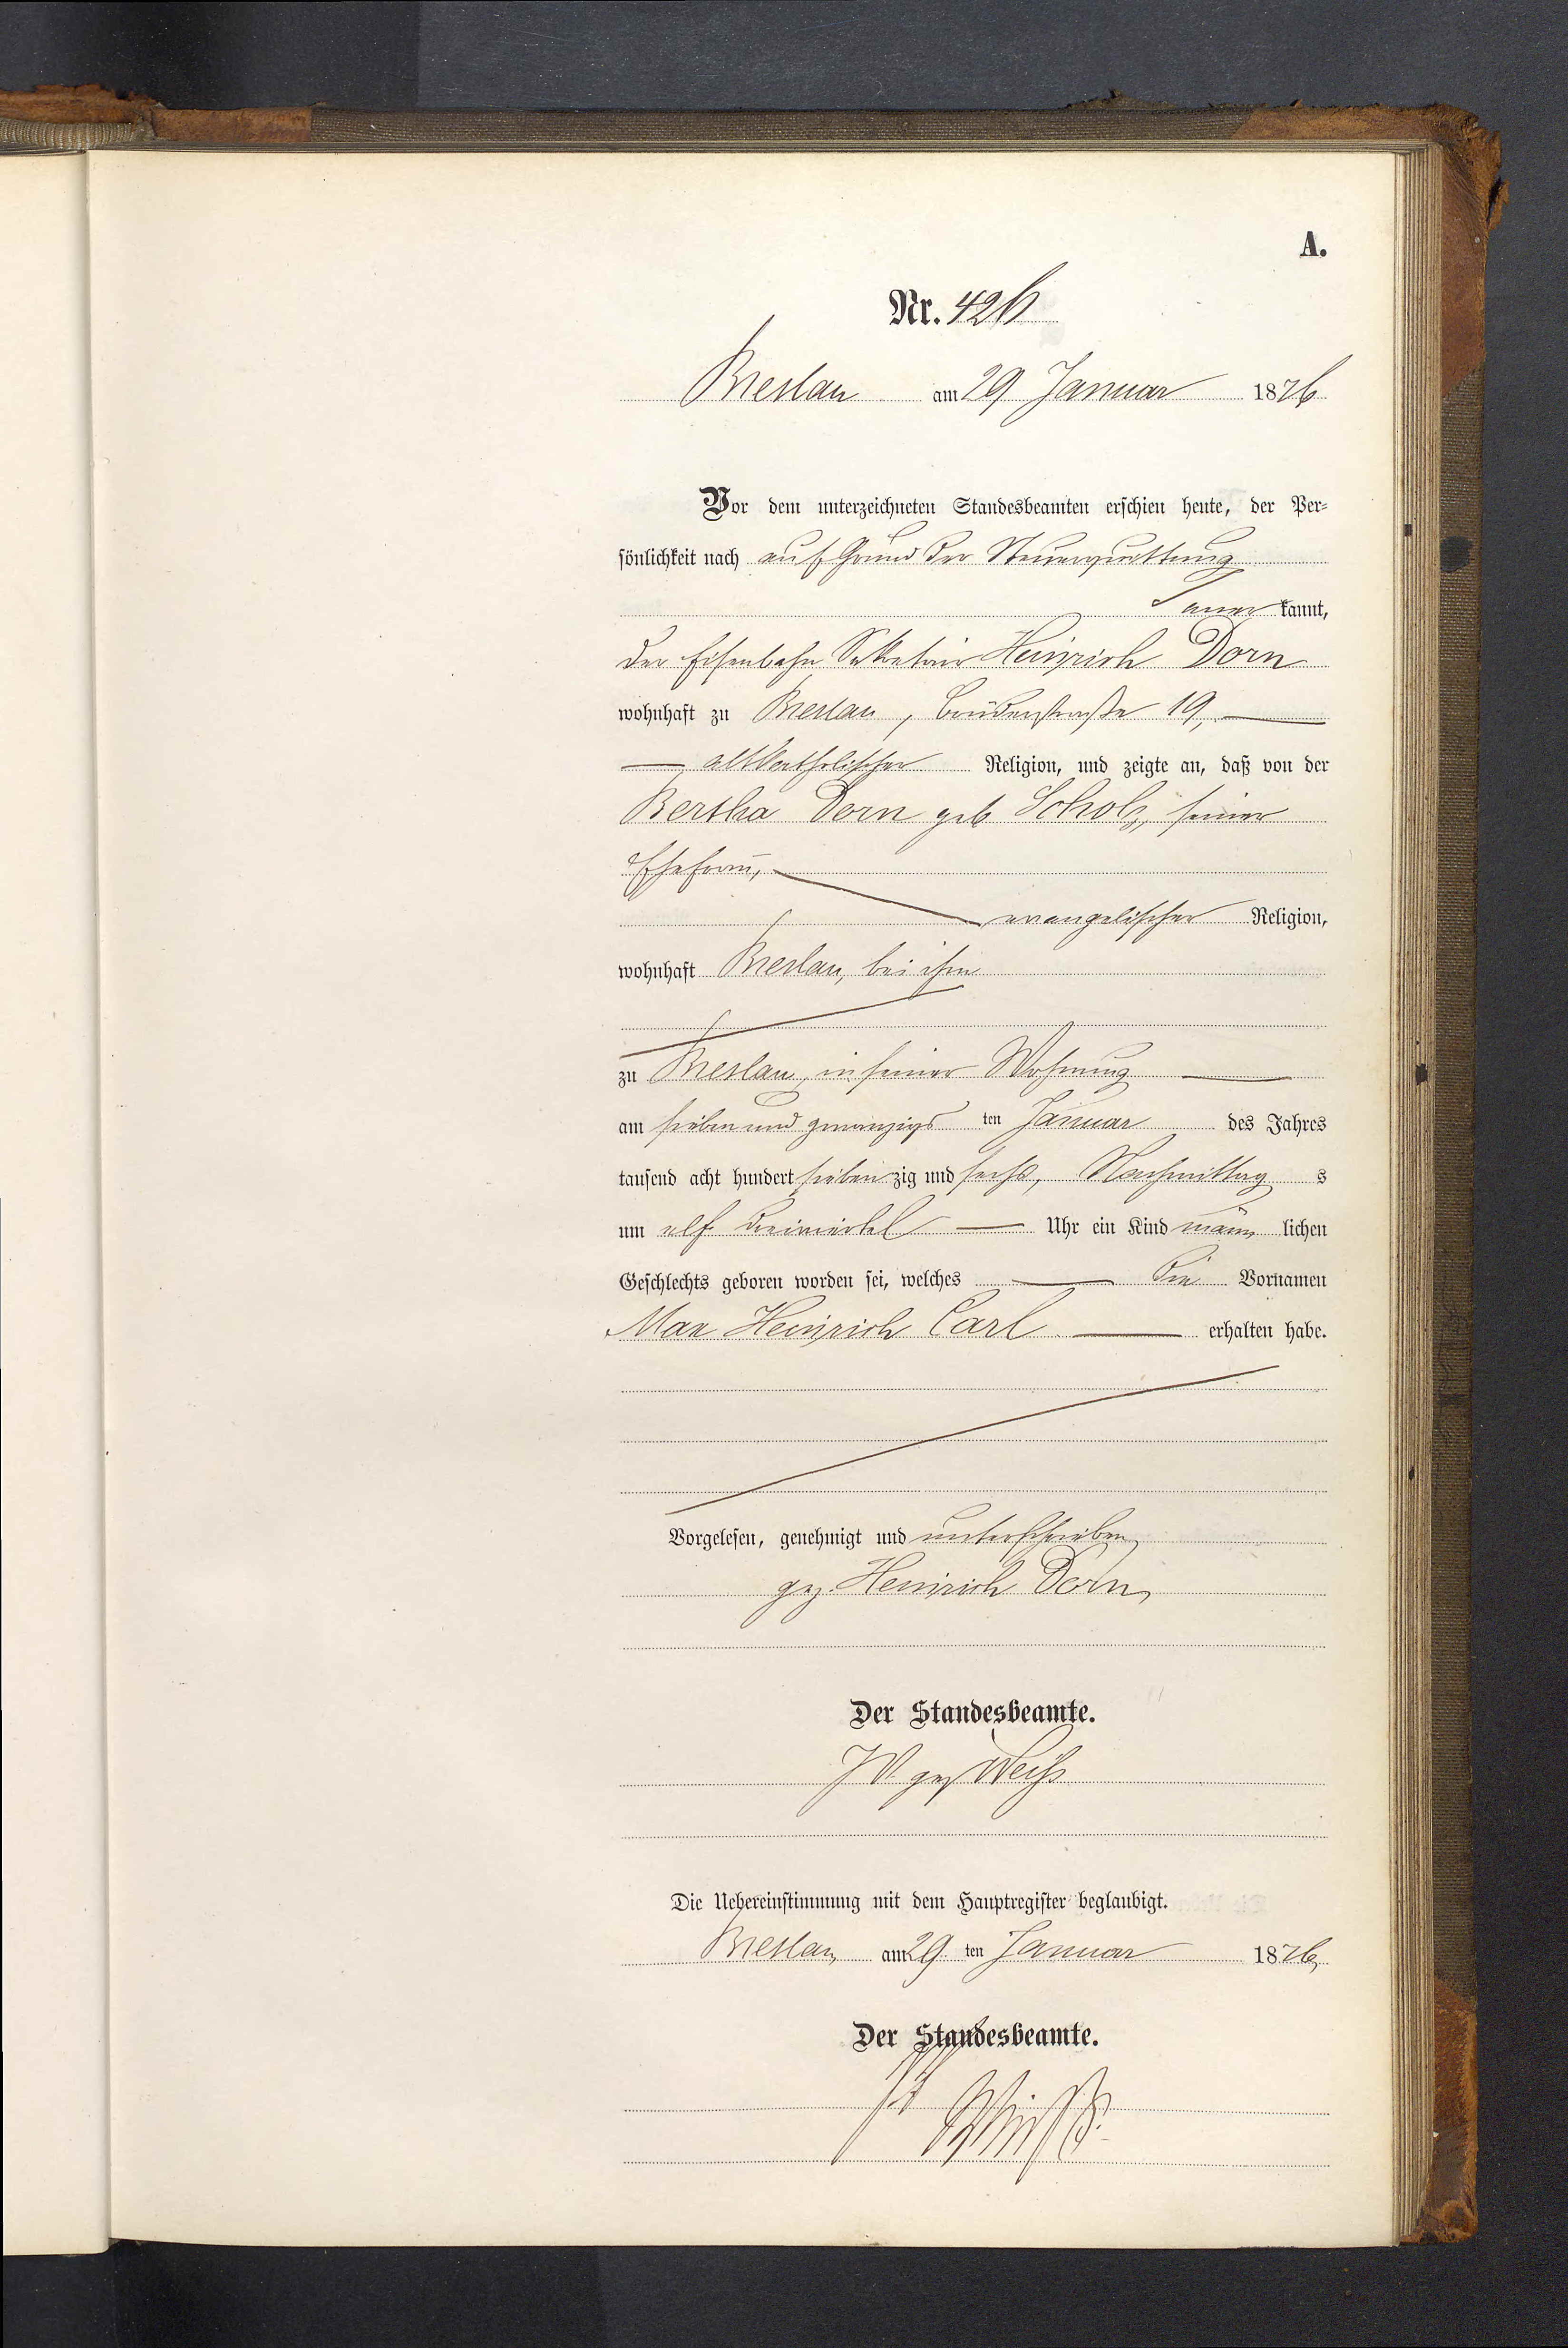 A.
Nr. 426
Breslau am 29 Januar 1876
Vor dem unterzeichneten Standesbeamten erschien heute, der Per-
sönlichkeit nach auf Grund der Steuerquittung
aner kannt,
der Eisenbahn Sekretair Heinrich Dorn
wohnhaft zu Breslau, Brüderstraße 19,
altkatholischer Religion, und zeigte an, daß von der
Bertha Dorn geb Scholz, seiner
Ehefrau,
evangelischer Religion,
wohnhaft Breslau, bei ihm
zu Breslau, in seiner Wohnung
am sieben und zwanzigs ten Januar des Jahres
tausend acht hundert sieben zig und sechs, Nachmittag s
um elf dreiviertel Uhr ein Kind männ lichen
Geschlechts geboren worden sei, welches die Vornamen
Max Heinrich Carl erhalten habe.
Vorgelesen, genehmigt und unterschrieben
gez. Heinrich Dorn
Der Standesbeamte.
JV. gez Weiß
Die Uebereinstimmung mit dem Hauptregister beglaubigt.
Breslau am 29 ten Januar 1876
Der Standesbeamte.